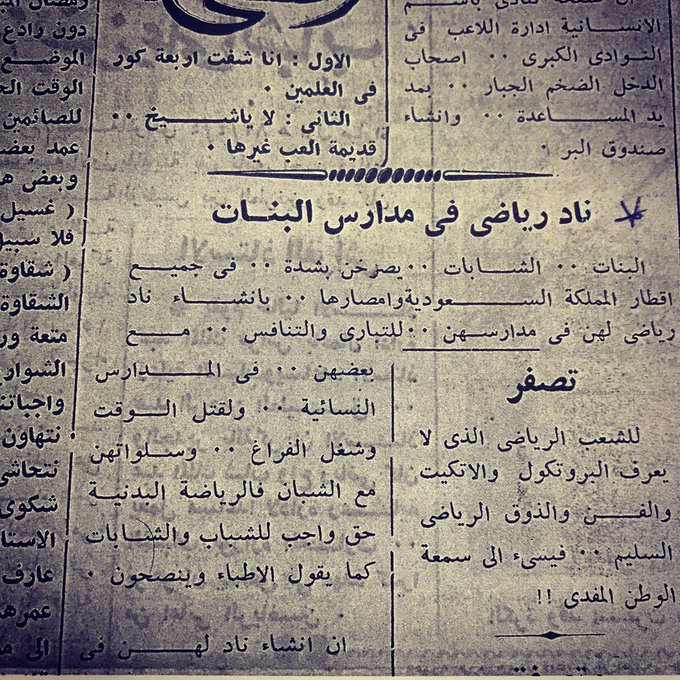 تنادى باسم
الانسانية ادارة اللاعب فى
النوادى الكبرى ٠٠ اصحاب
الدخل الضخم الجبار ٠٠ بمد
يد المســاعدة ٠٠ وانشاء
صندوق البر ٠
الاول : انا شفت اربعة كور
فى العلمين ٠
الثانى : لا ياشيخ ٠٠
قديمة العب غيرها ٠
ناد رياضى فى مدارس البنات
البنات ٠٠ الشابات ٠٠ يصرخن بشدة ٠٠ فى جميع
اقطار المملكة الســعودية وامصارها ٠٠ بانشاء ناد
رياضى لهن فى مدارسهن ٠٠ للتبارى والتنافس ٠٠ مع
بعضهن ٠٠ فى المــدارس
النسائية ٠٠ ولقتل الوقت
وشغل الفراغ ٠٠ وسلواتهن
مع الشبان فالرياضة البدنية
حق واجب للشباب والشابات
كما يقول الاطباء وينصحون ٠
ان انشاء ناد لهن فى
تصفر
للشعب الرياضى الذى لا
يعرف البروتكول والاتكيت
والفن والذوق الرياضى
السليم ٠٠ فيسىء الى سمعة
الوطن المفدى !!
دون رادع
الموضع
الوقت
للصائمين
عمد بعض
وبعض
( غسيل
فلا سبيل
( شقاوة
الشقاوة
متعة
الشوار
نتهاون
شكوى
عارف
الى